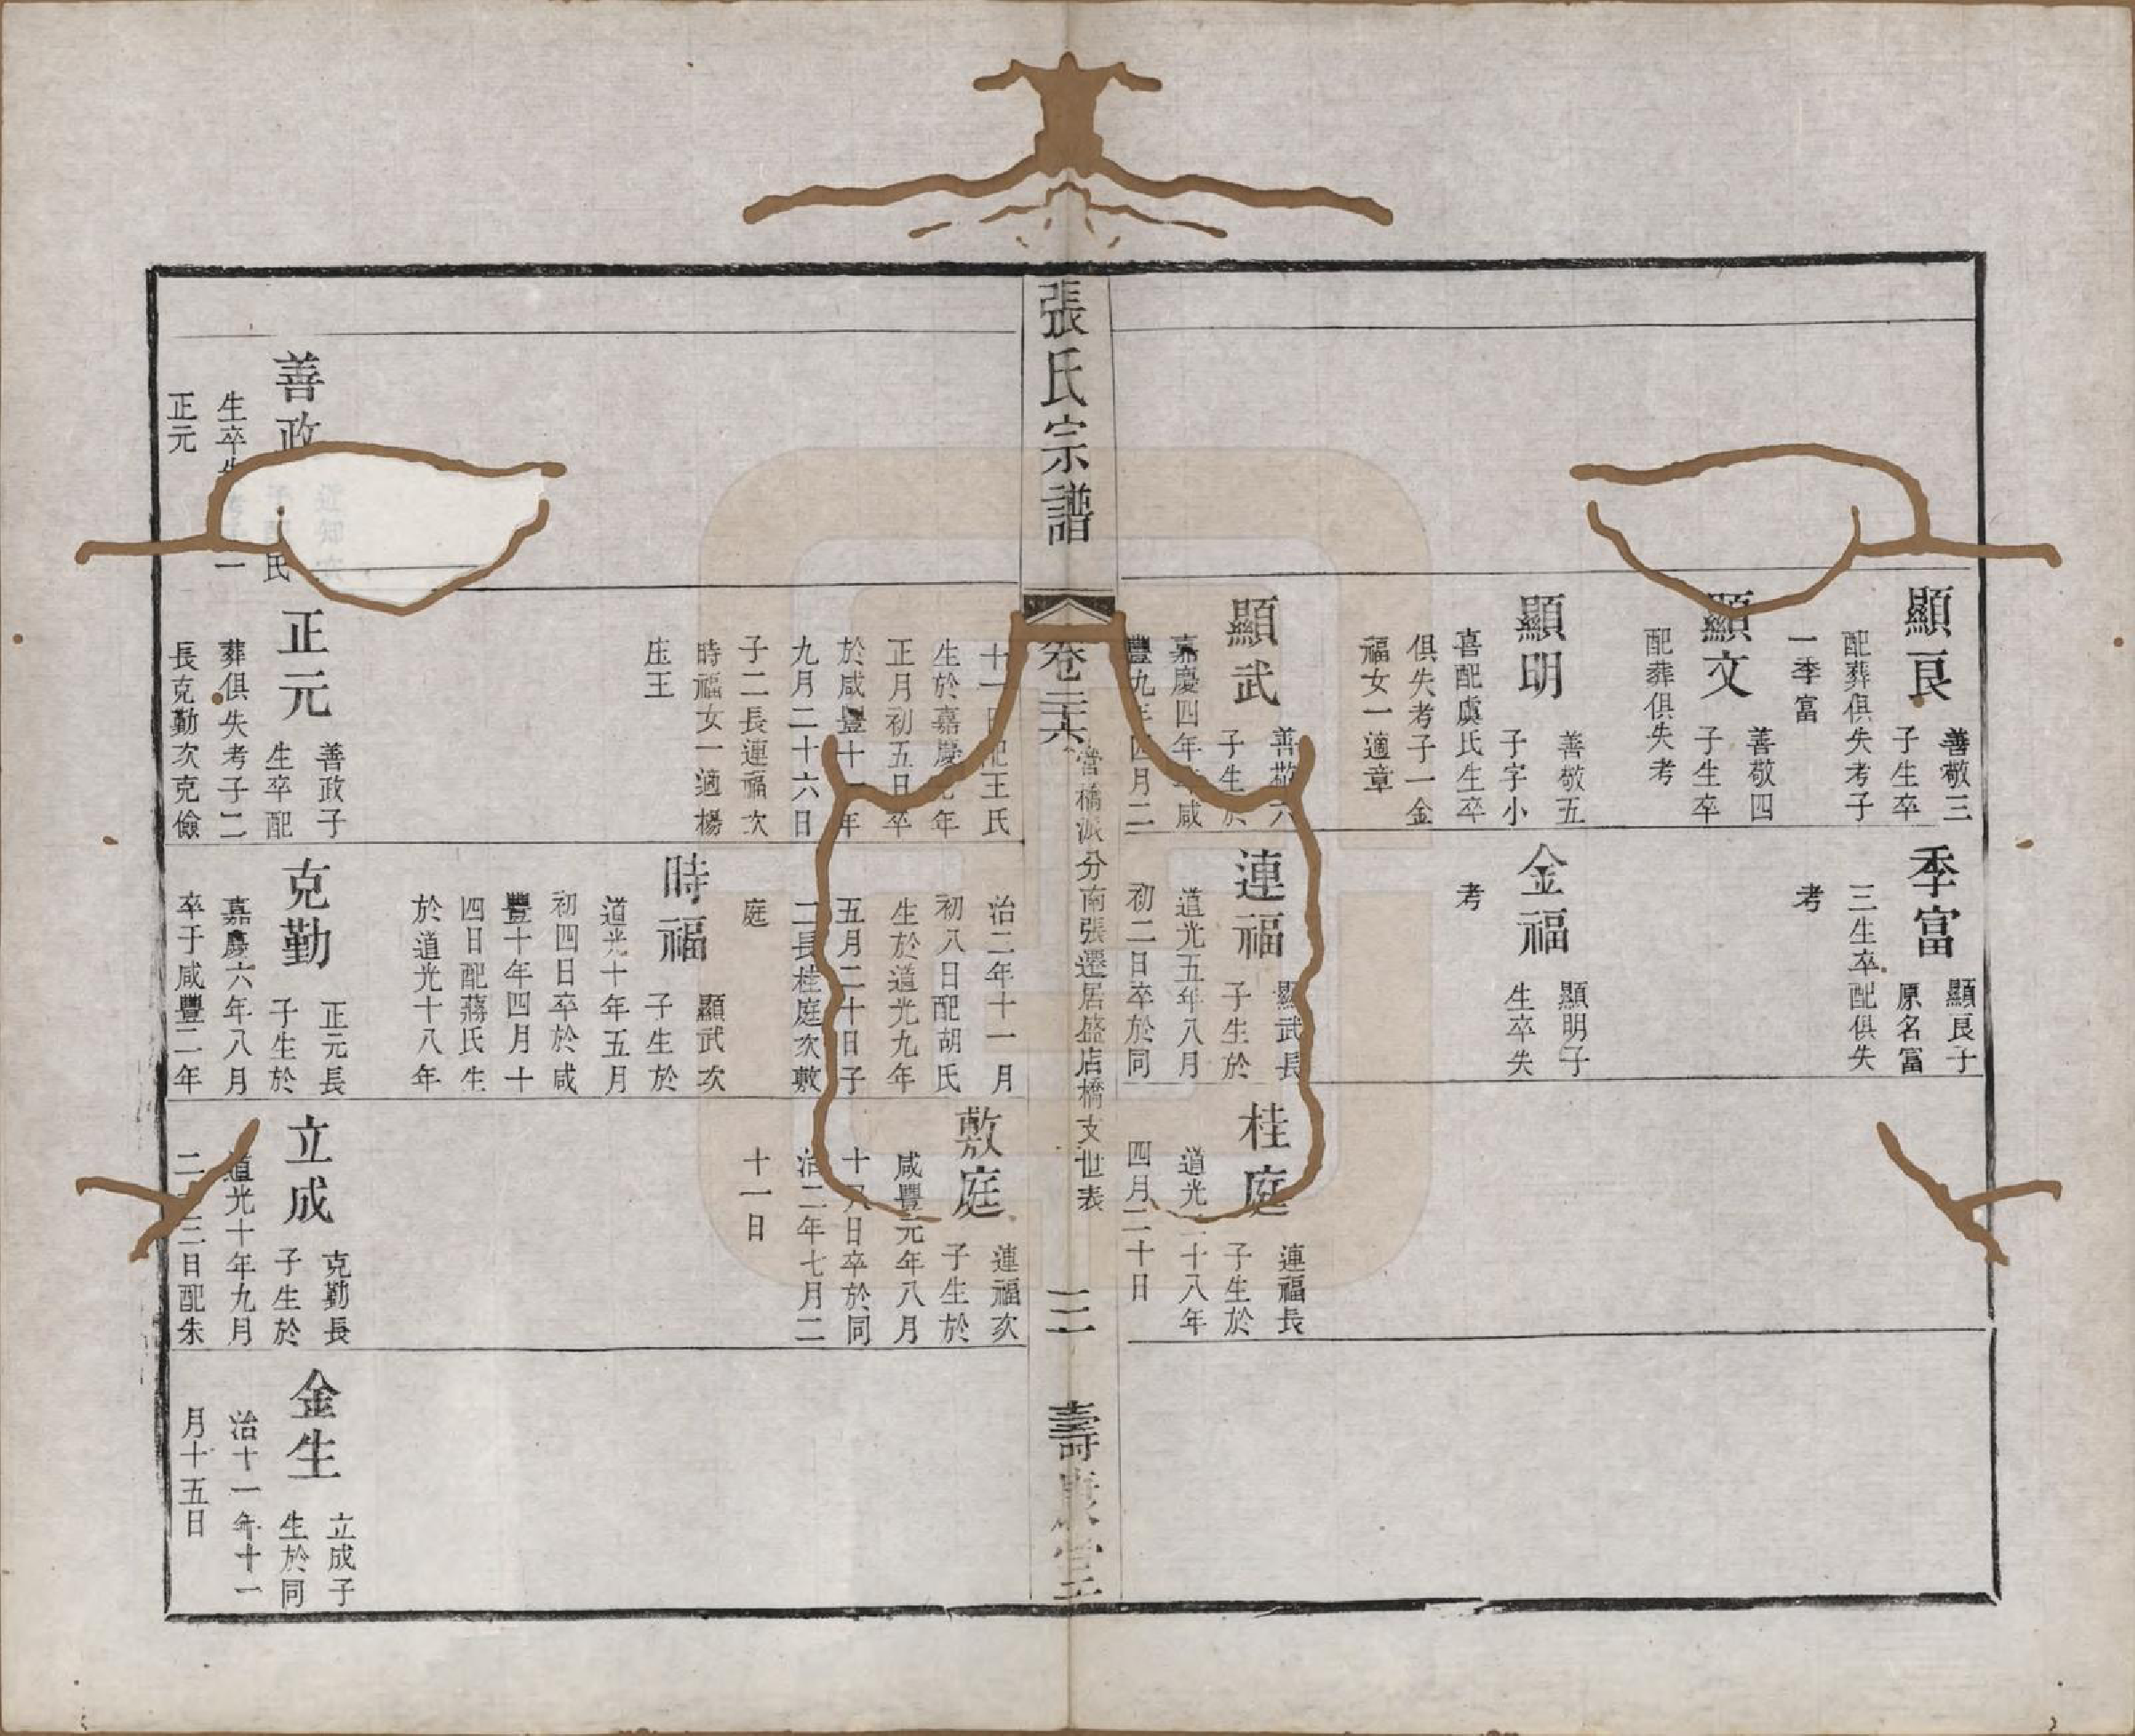 顯良
善敬三
子生卒
配葬俱失考子
一季富
顯文
善敬四
子生卒
配葬俱失考
顯明
善敬五
子字小
喜配虞氏生卒
俱失考子一金
福女一適章
顯武
善敬六
子生於
嘉慶四年 咸
豐九年四月二
季富
顯良子
原名富
三生卒配俱失
考
金福
顯明子
生卒失
考
連福
顯武長
子生於
道光五年八月
初二日卒於同
桂庭
連福長
子生於
道光二十八年
四月二十日
張氏宗譜
卷二六
當橋派分南張遷居盛店橋支世表
三
壽
十一日配王氏
生於嘉慶 年
正月初五日卒
於咸豐十一年
九月二十六日
子二長連福次
時福女一適楊
庄王
治二年十一月
初八日配胡氏
生於道光九年
五月二十日子
二長桂庭次敷
庭
時福
顯武次
子生於
道光十年五月
初四日卒於咸
豐十年四月十
四日配蔣氏生
於道光十八年
敷庭
連福次
子生於
咸豐元年八月
十八日卒於同
治二年七月二
十一日
善政
氏
生卒 一
正元
正元
善政子
生卒配
葬俱失考子二
長克勤次克儉
克勤
正元長
子生於
嘉慶六年八月
卒于咸豐二年
立成
克勤長
子生於
道光十年九月
二 三日配朱
金生
立成子
生於同
治十一年十一
月十五日